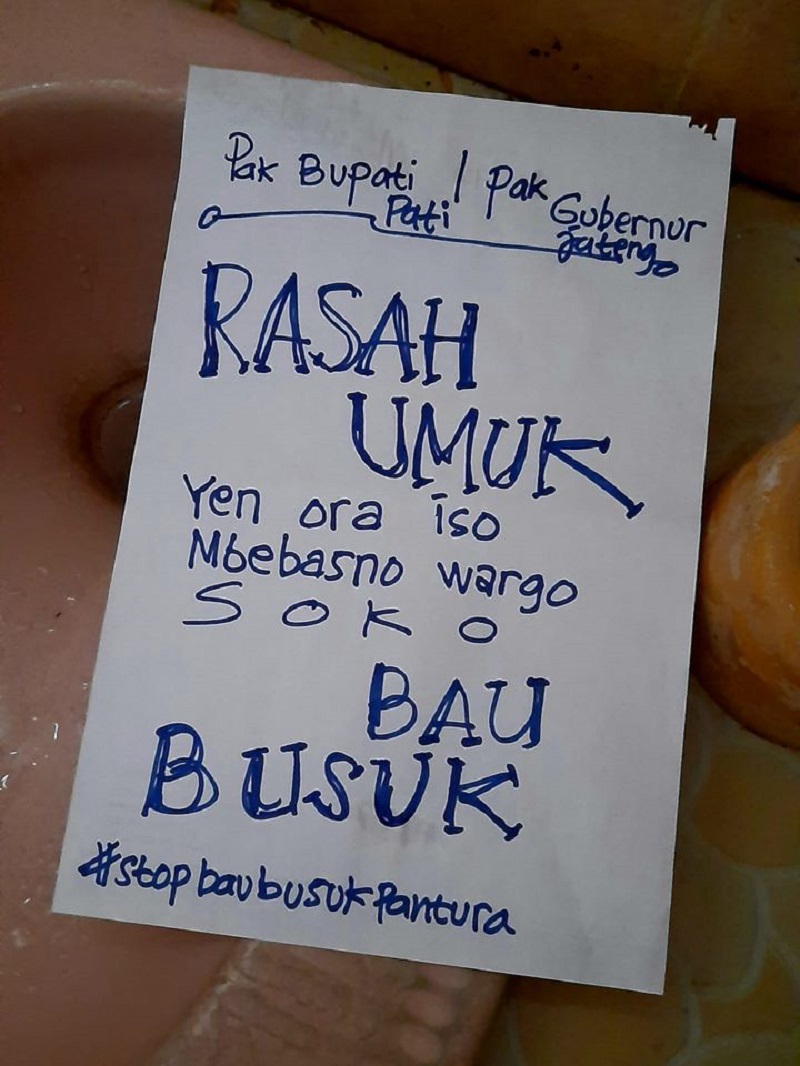 Pak Bupati / Pak Gubernur
Pati Jateng
RASAH
UMUK
Yen ora iso
Mbebasno wargo
SOKO
BAU
BUSUK
#stopbaubusukPantura